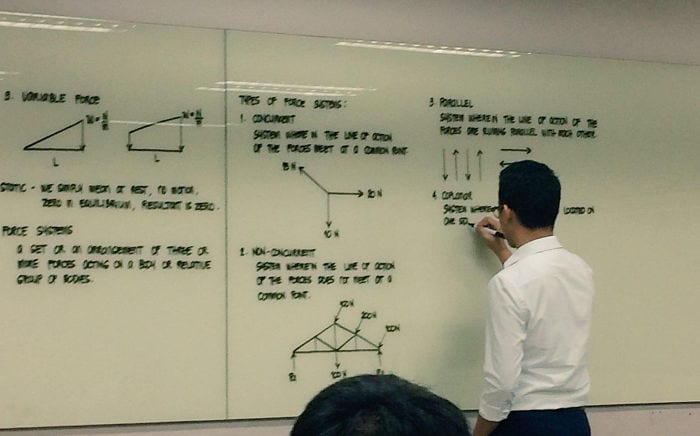 3. VARIABLE FORCE
W = N/m
W = N/m
L
L
STATIC - WE SIMPLY MEAN AT REST, NO MOTION,
ZERO IN EQUILIBRIUM, RESULTANT IS ZERO.
FORCE SYSTEMS
A SET OR AN ARRANGEMENT OF THREE OR
MORE FORCES ACTING ON A BODY OR RELATIVE
GROUP OF BODIES.
TYPES OF FORCE SYSTEMS:
1. CONCURRENT
SYSTEM WHERE IN THE LINE OF ACTION
OF THE FORCES MEET AT A COMMON POINT
15 N
20 N
10 N
2. NON-CONCURRENT
SYSTEM WHERE'N THE LINE OF ACTION
OF THE FORCES DOES NOT MEET AT A
COMMON POINT.
100N
200N
100N
3. PARALLEL
SYSTEM WHEREIN THE LINE OF ACTION OF THE
FORCES ARE RUNING PARALLEL WITH EACH OTHER.
4. COPLANAR
SYSTEM WHERE LOCATED ON
ONE